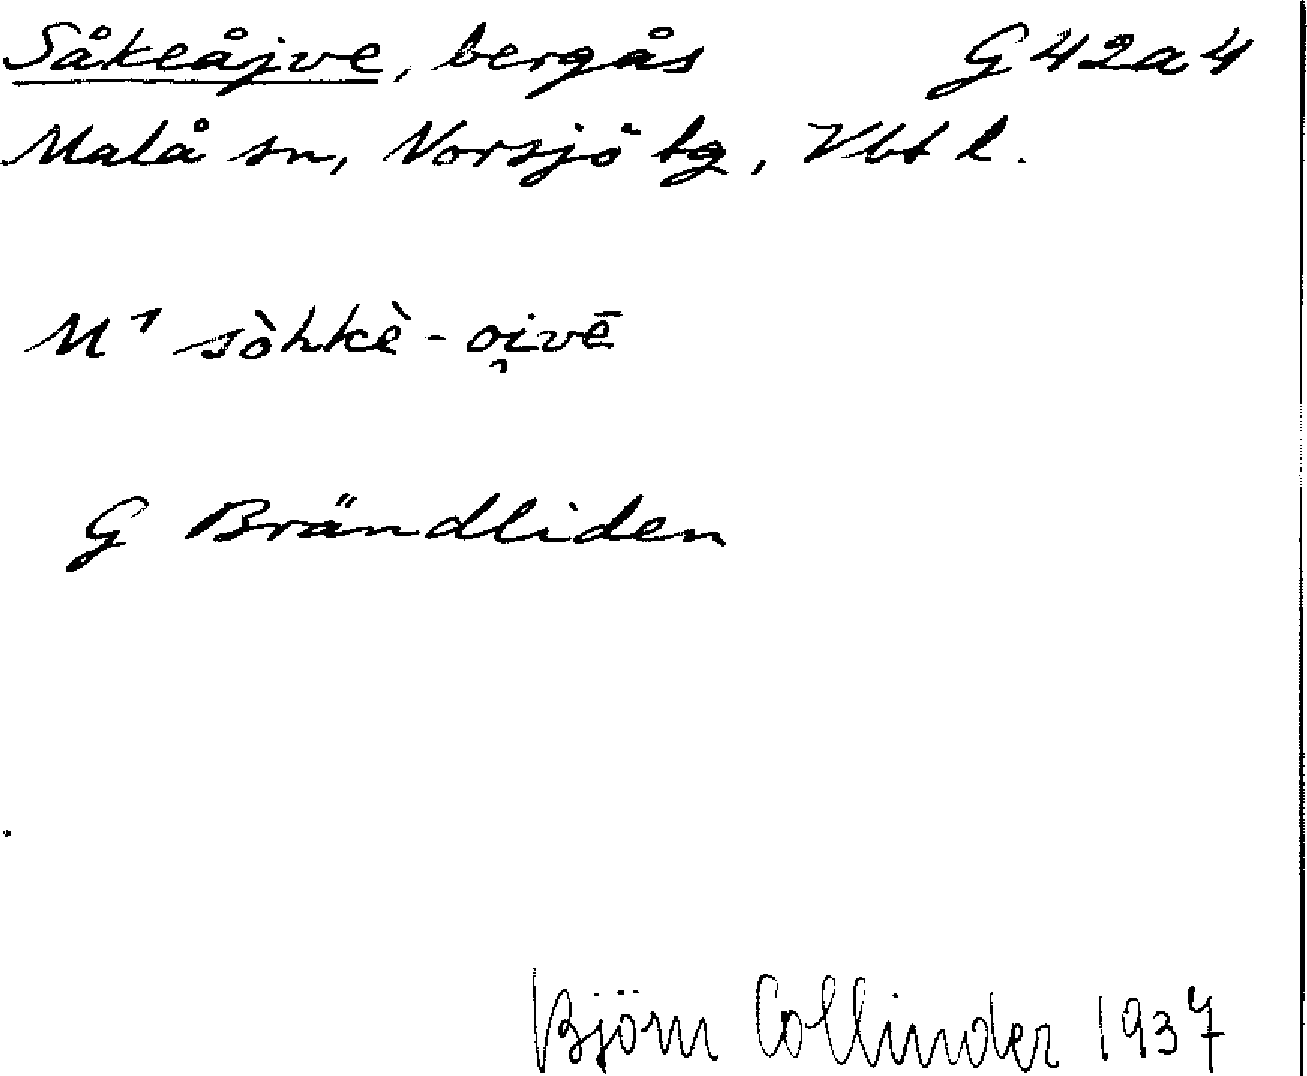 Såkeåjve, bergås G42a4
Malå sn, Norsjö tg, Vbt l.
M¹ sòhkè-oi̯vē
G Brändliden
Björn Collinder 1937